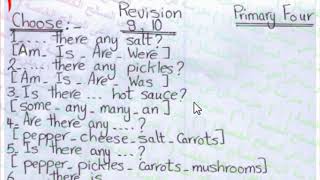 Revision Primary Four
9, 10
Choose:-
1- .... there any salt?
[Am - Is - Are - Were]
2- ..... there any pickles?
[Am - Is - Are - Was]
3- Is there ... hot sauce?
[some - any - many - an]
4- Are there any ....?
[pepper - cheese - salt - carrots]
5- Is there any ....?
[pepper - pickles - carrots - mushrooms]
6 ... there is